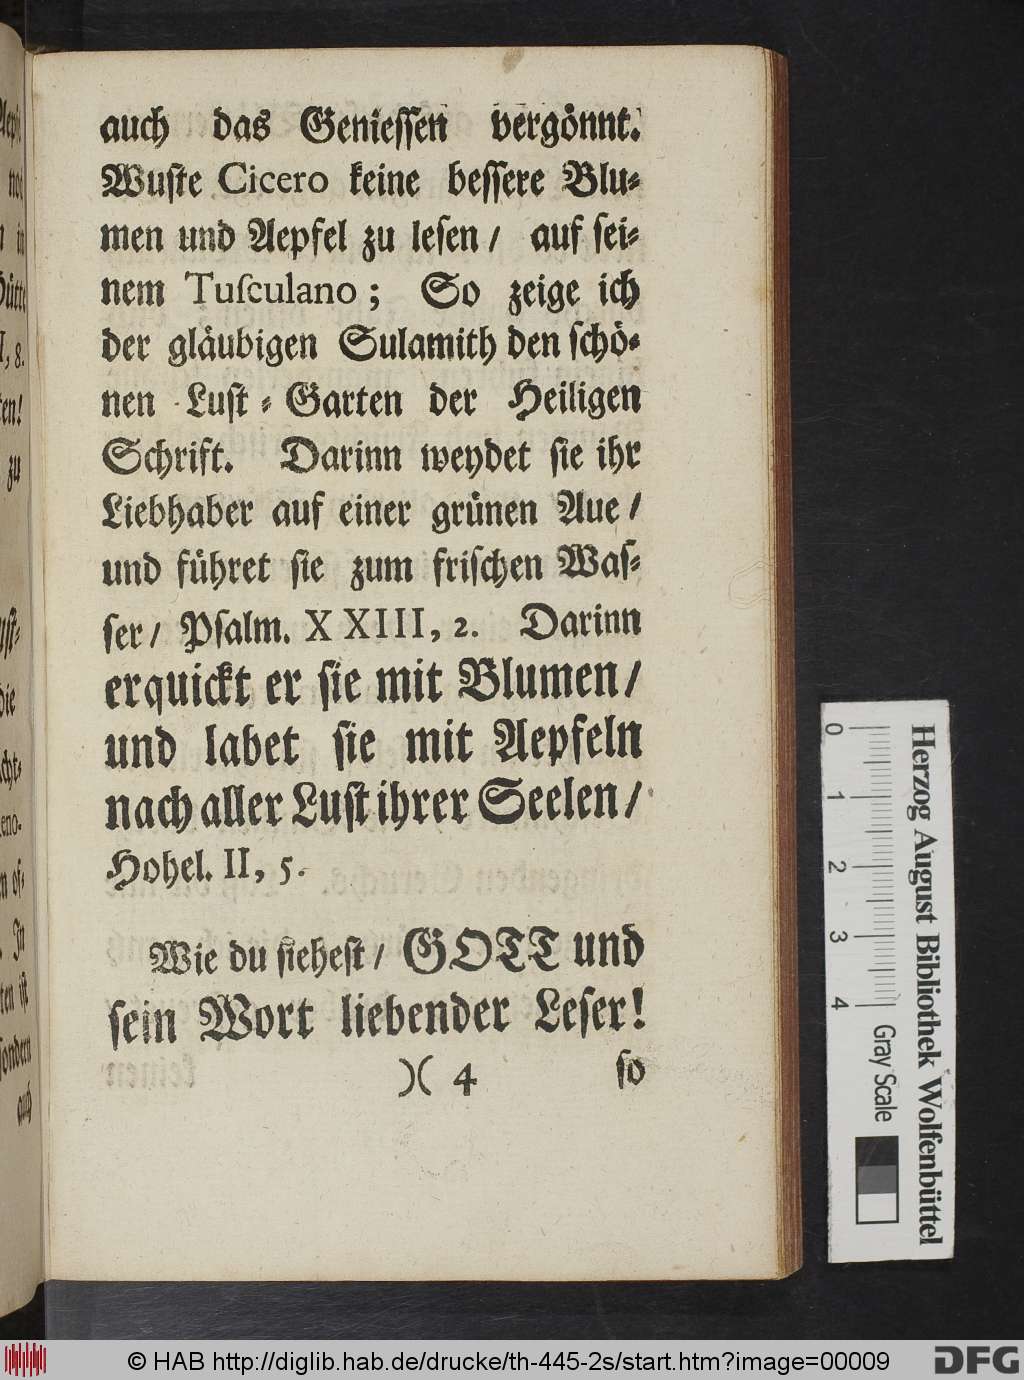 auch das Genieſſen vergönnt.
Wuſte Cicero keine beſſere Blu⸗
men und Aepfel zu leſen / auf ſei⸗
nem Tuſculano ; So zeige ich
der gläubigen Sulamith den ſchö⸗
nen Luſt ⸗ Garten der Heiligen
Schrift. Darinn weydet ſie ihr
Liebhaber auf einer grünen Aue /
und führet ſie zum friſchen Waſ⸗
ſer / Pſalm. XXIII, 2. Darinn
erquickt er ſie mit Blumen /
und labet ſie mit Aepfeln
nach aller Luſt ihrer Seelen /
Hohel. II, 5.
Wie du ſieheſt / GOTT und
ſein Wort liebender Leſer!
)( 4 ſo
0 1 2 3 4 Gray Scale
Herzog August Bibliothek Wolfenbüttel
© HAB http://diglib.hab.de/drucke/th-445-2s/start.htm?image=00009
DFG